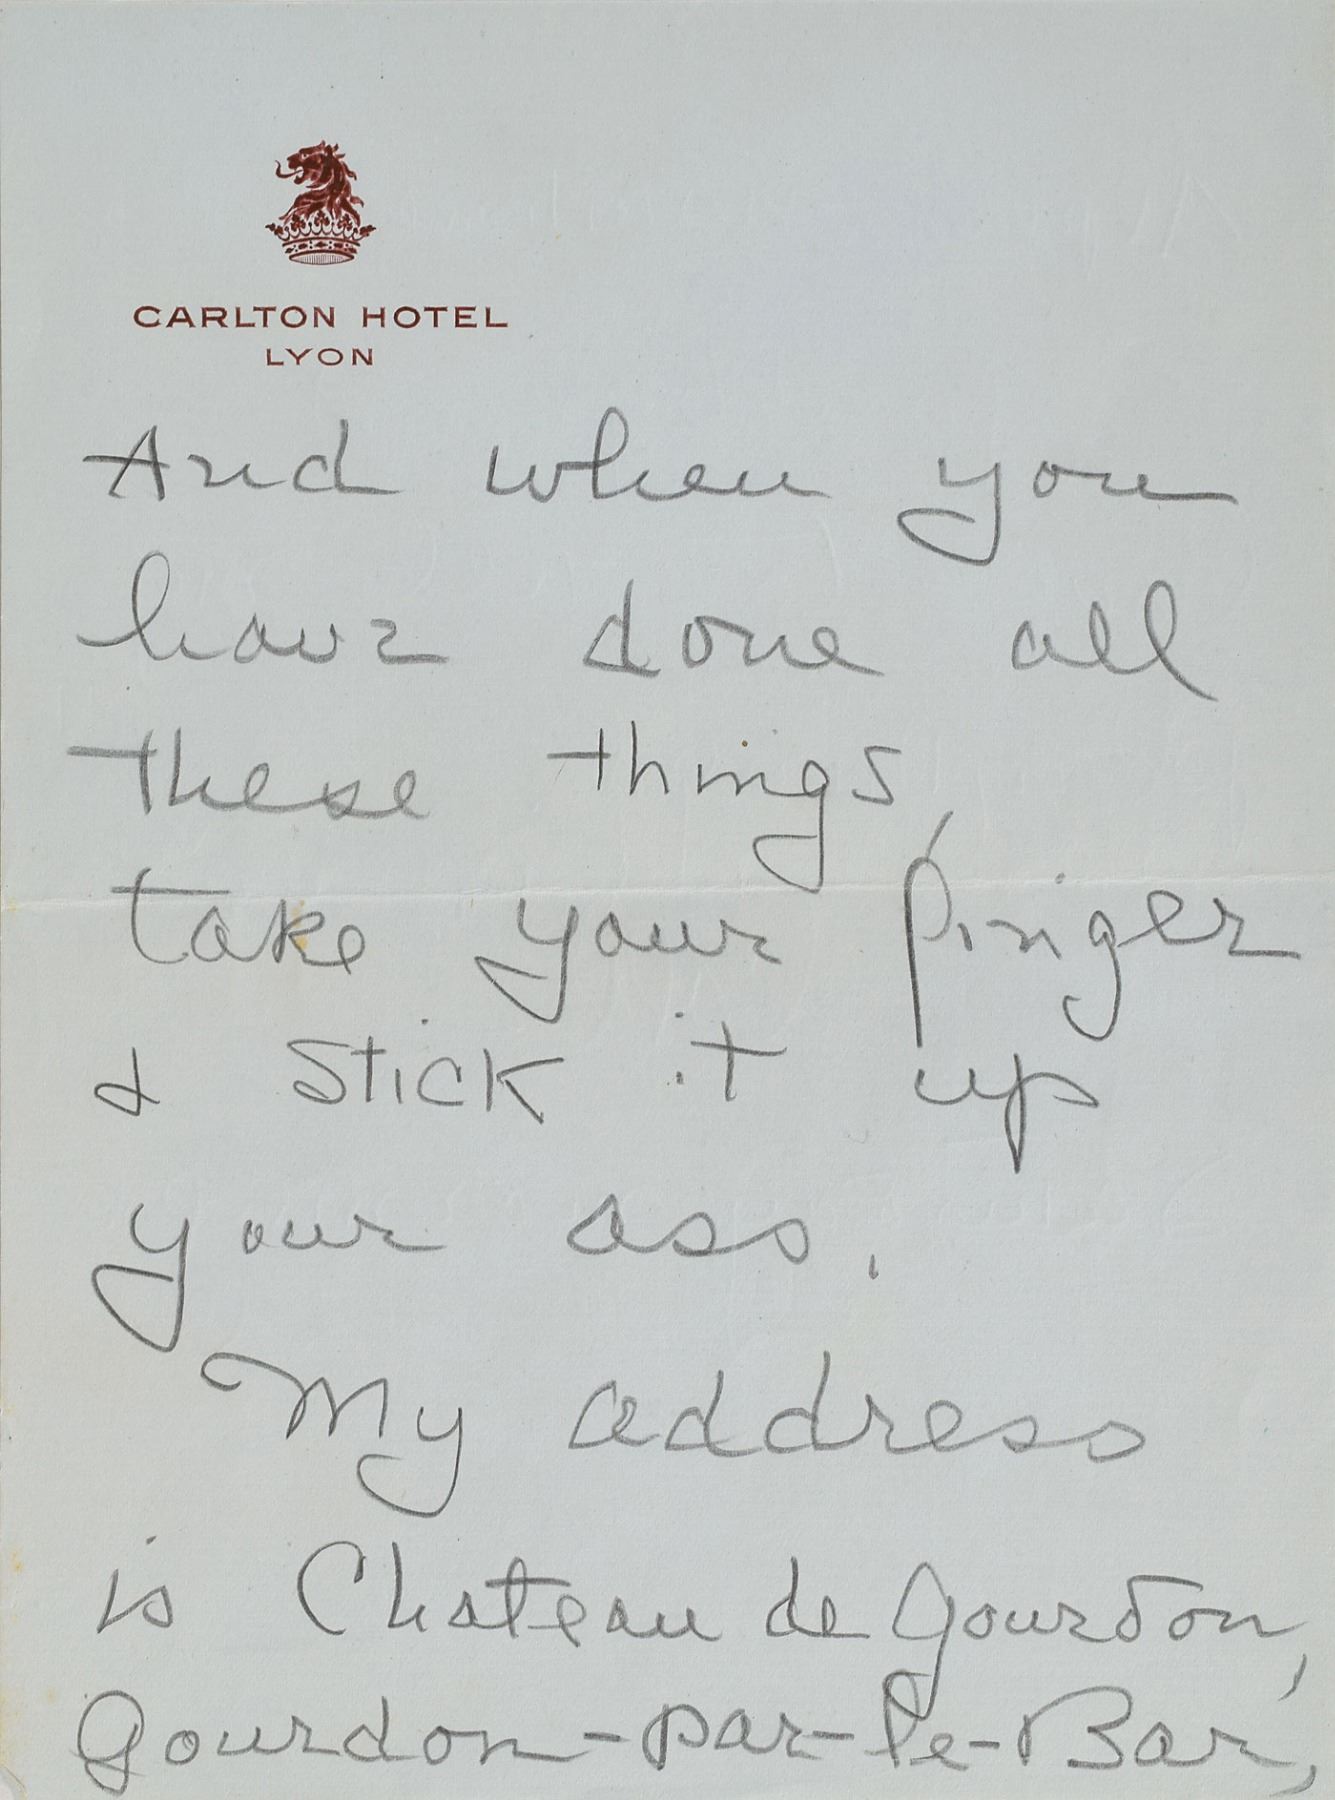 CARLTON HOTEL
LYON
And when you
have done all
these things,
take your finger
& stick it up
your ass.
My address
is Chateau de Gourdon,
Gourdon-par-le-Bar,